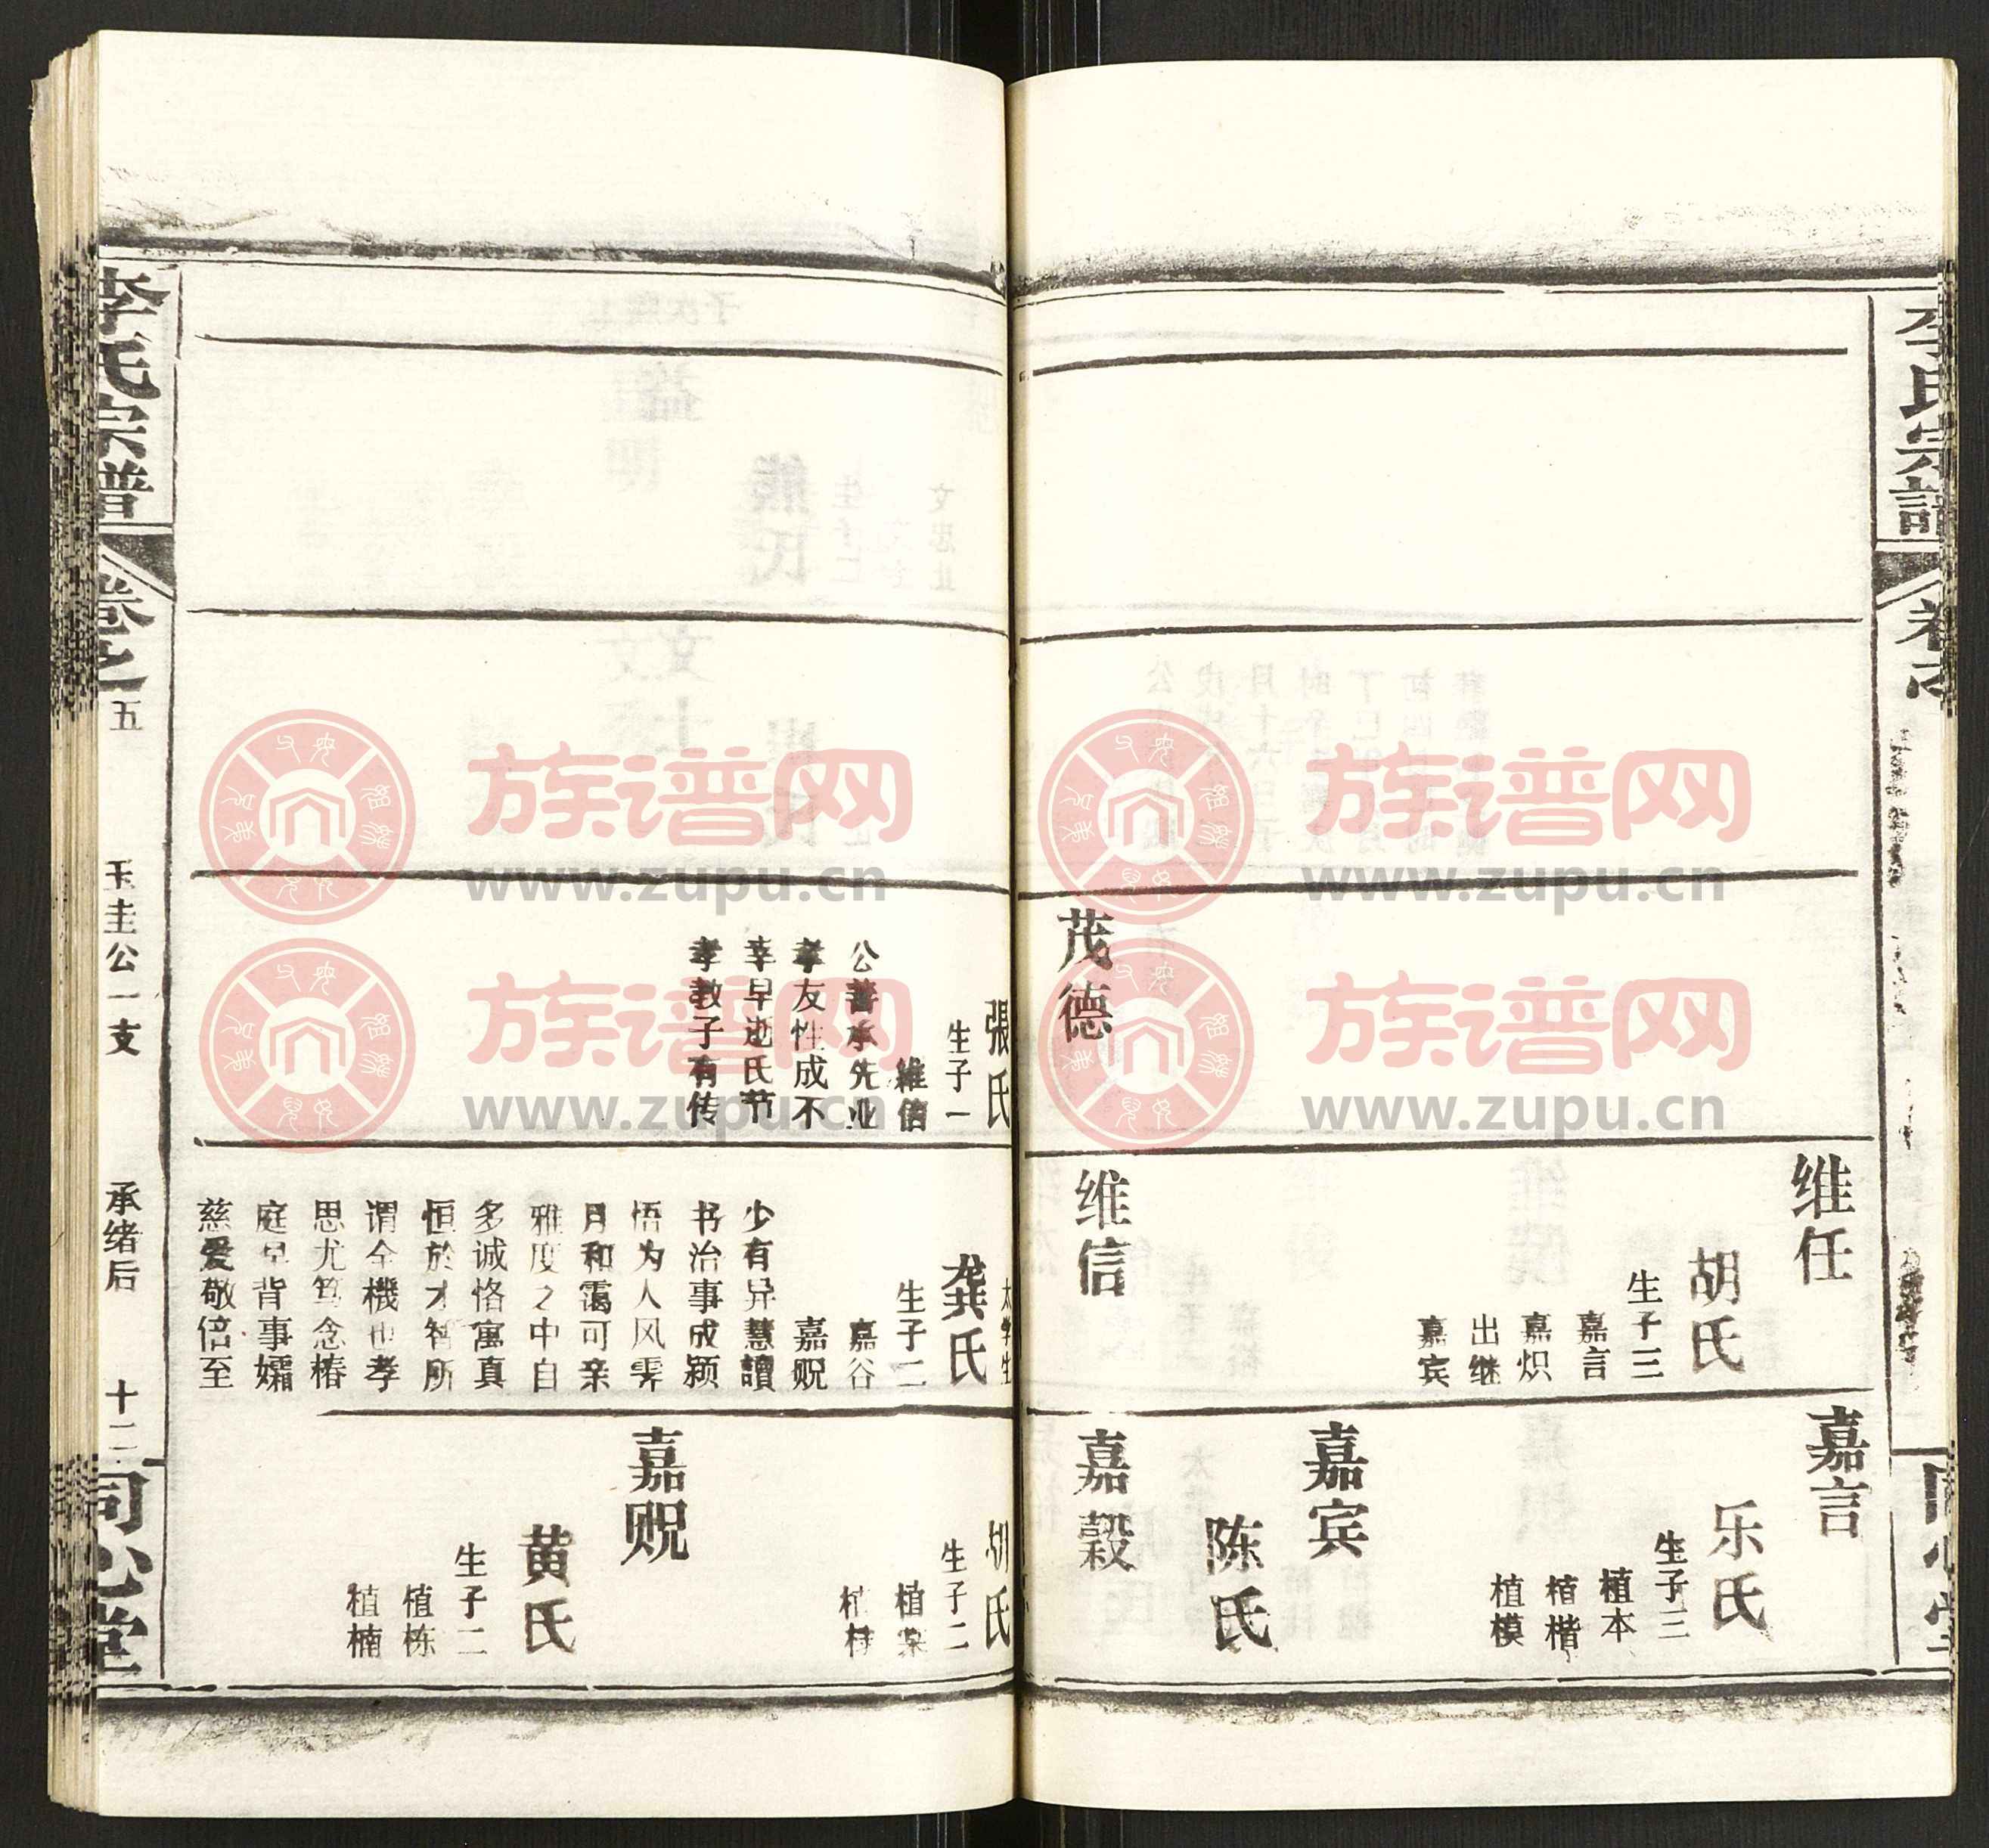 李氏宗譜
茂德
维任
胡氏
生子三
嘉言
嘉炽
出继
嘉宾
维信
嘉言
乐氏
生子三
植本
植楷
植模
嘉宾
陈氏
嘉榖
同心堂
張氏
生子一
維信
公善承先业
孝友性成不
幸早逝氏节
孝教子有传
太学生
龚氏
生子二
嘉谷
嘉贶
少有异慧讀
书治事成颖
悟为人风霁
月和霭可亲
雅度之中自
多诚恪寓真
恒於才智所
谓全機也孝
思尤笃念椿
庭早背事孀
慈爱敬倍至
胡氏
生子二
嘉贶
黄氏
生子二
植栋
植楠
李氏宗譜
卷之五
玉圭公一支
承绪后
十二
同心堂
族谱网
www.zupu.cn
族谱网
www.zupu.cn
族谱网
www.zupu.cn
族谱网
www.zupu.cn